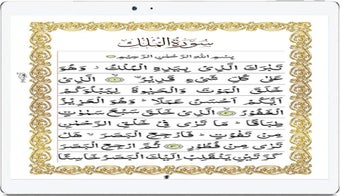 سُورَةُ الْمُلْكِ
بِسْمِ اللهِ الرَّحْمٰنِ الرَّحِيْمِ
تَبٰرَكَ الَّذِىْ بِيَدِهِ الْمُلْكُ وَهُوَ
عَلٰى كُلِّ شَىْءٍ قَدِيْرُ ۙ﴿۱﴾ الَّذِىْ
خَلَقَ الْمَوْتَ وَالْحَيٰوةَ لِيَبْلُوَكُمْ
اَيُّكُمْ اَحْسَنُ عَمَلًا ؕ وَهُوَ الْعَزِيْزُ
الْغَفُوْرُ ۙ﴿۲﴾ الَّذِىْ خَلَقَ سَبْعَ سَمٰوٰتٍ
طِبَاقًا ؕ مَا تَرٰى فِىْ خَلْقِ الرَّحْمٰنِ
مِنْ تَفٰوُتٍ ؕ فَارْجِعِ الْبَصَرَ ۙ هَلْ
تَرٰى مِنْ فُطُوْرٍ ﴿۳﴾ ثُمَّ ارْجِعِ الْبَصَرَ
كَرَّتَيْنِ يَنْقَلِبْ اِلَيْكَ الْبَصَرُ خَاسِئًا